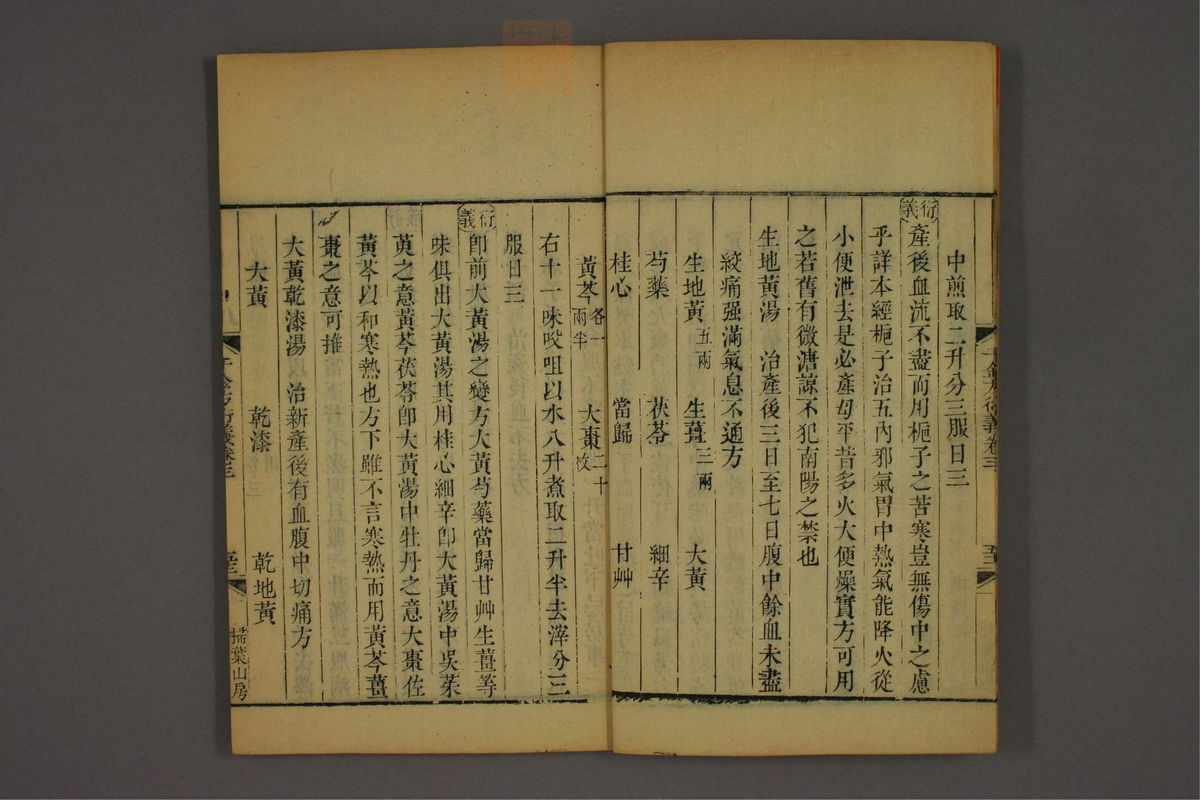 中煎取二升分三服日三
衍義產後血流不盡而用梔子之苦寒豈無傷中之慮
乎詳本經梔子治五內邪氣胃中熱氣能降火從
小便泄去是必產母平昔多火大便燥實方可用
之若舊有微溏諒不犯南陽之禁也
生地黃湯 治產後三日至七日腹中餘血未盡
絞痛强滿氣息不通方
生地黃五兩 生薑三兩 大黃
芍藥 茯苓 細辛
桂心 當歸 甘艸
黃芩各一兩半 大棗二十枚
右十一味㕮咀以水八升煮取二升半去滓分三
服日三
衍義卽前大黃湯之變方大黃芍藥當歸甘艸生薑等
味俱出大黃湯其用桂心細辛卽大黃湯中吳茱
萸之意黃芩茯苓卽大黃湯中牡丹之意大棗佐
黃芩以和寒熱也方下雖不言寒熱而用黃芩薑
棗之意可推
大黃乾漆湯 治新產後有血腹中切痛方
大黃 乾漆 乾地黃
千金方衍義卷三
掃葉山房